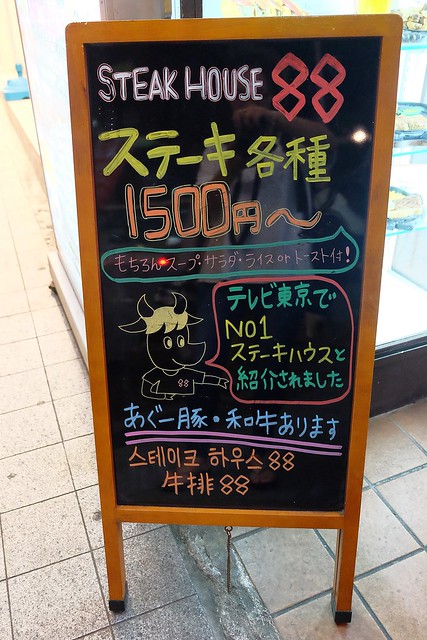 STEAK HOUSE 88
ステーキ各種
1500円～
もちろんスープ・サラダ・ライスorトースト付!
テレビ東京で
NO1
ステーキハウスと
紹介されました
88
あぐー豚・和牛あります
스테이크 하우스 88
牛排 88